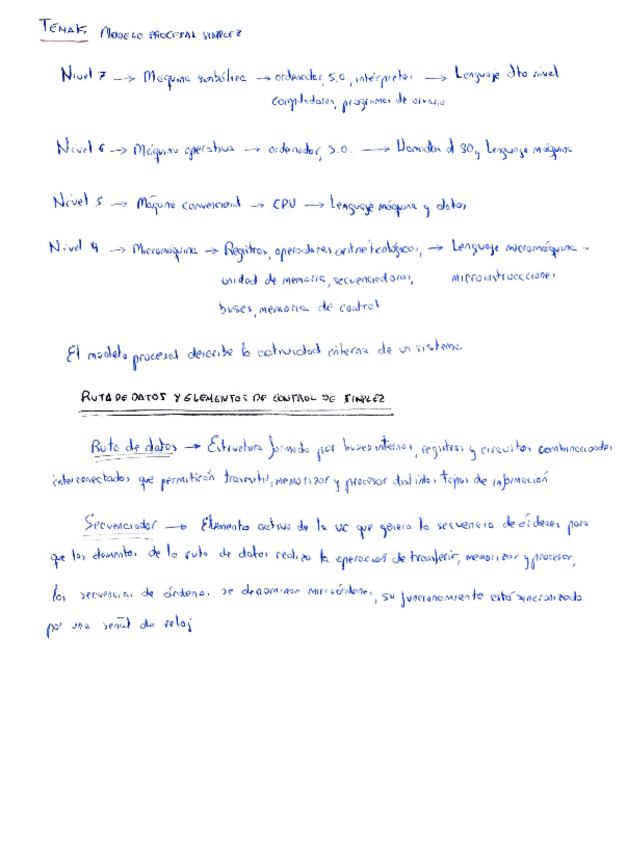 TEMA MODELO PROCESAL SIMPLEZ
Nivel 7 → Máquina simbólica → ordenador, S.O., intérpretes → Lenguaje alto nivel
compiladores, programas de usuario
Nivel 6 → Máquina operativa → ordenador, S.O. → Llamadas al SO y Lenguaje máquina
Nivel 5 → Máquina convencional → CPU → Lenguaje máquina y datos
Nivel 4 → Micromáquina → Registros, operadores aritmeticológicos, → Lenguaje micromáquina -
unidad de memoria, secuenciadores, microinstrucciones
buses, memoria de control
El modelo procesal describe la actividad interna de un sistema.
RUTA DE DATOS Y ELEMENTOS DE CONTROL DE SIMPLEZ
Ruta de datos → Estructura formada por buses internos, registros y circuitos combinacionales
interconectados que permitirán trasmitir, memorizar y procesar distintos tipos de información
Secuenciador → Elemento activo de la UC que genera la secuencia de órdenes para
que los elementos de la ruta de datos realiza la operación de transferir, memorizar y procesar,
las secuencias de órdenes se denominan microórdenes, su funcionamiento está sincronizado
por una señal de reloj